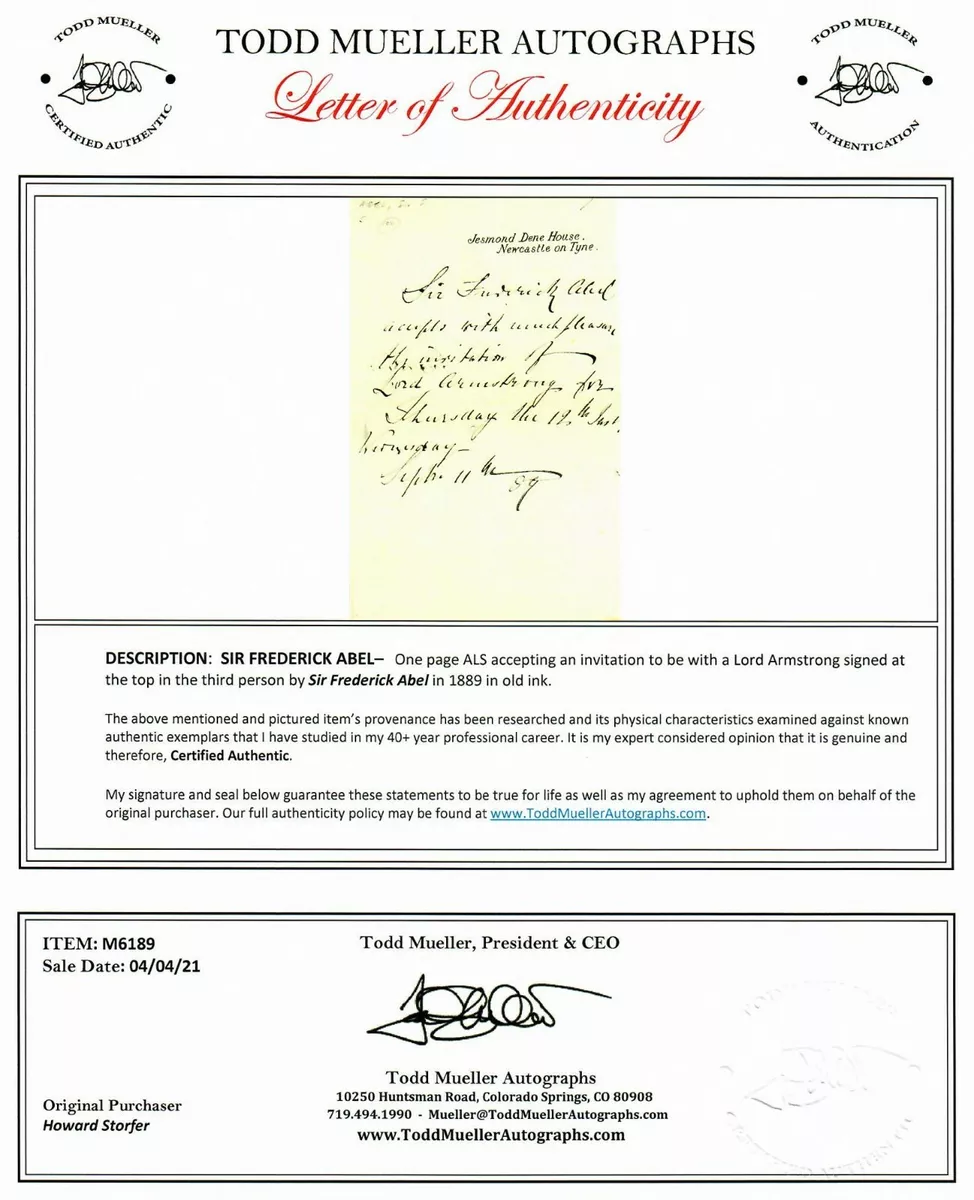 TODD MUELLER
CERTIFIED AUTHENTIC
TODD MUELLER AUTOGRAPHS
Letter of Authenticity
TODD MUELLER
AUTHENTICATION
Jesmond Dene House.
Newcastle on Tyne.
Sir Frederick Abel
accepts with much pleasure
the invitation of
Lord Armstrong for
Thursday the 12th Inst.
Wednesday—
Septr. 11th 89
DESCRIPTION: SIR FREDERICK ABEL– One page ALS accepting an invitation to be with a Lord Armstrong signed at
the top in the third person by Sir Frederick Abel in 1889 in old ink.
The above mentioned and pictured item's provenance has been researched and its physical characteristics examined against known
authentic exemplars that I have studied in my 40+ year professional career. It is my expert considered opinion that it is genuine and
therefore, Certified Authentic.
My signature and seal below guarantee these statements to be true for life as well as my agreement to uphold them on behalf of the
original purchaser. Our full authenticity policy may be found at www.ToddMuellerAutographs.com.
ITEM: M6189
Sale Date: 04/04/21
Todd Mueller, President & CEO
Todd Mueller Autographs
10250 Huntsman Road, Colorado Springs, CO 80908
719.494.1990 - Mueller@ToddMuellerAutographs.com
www.ToddMuellerAutographs.com
Original Purchaser
Howard Storfer
TODD MUELLER